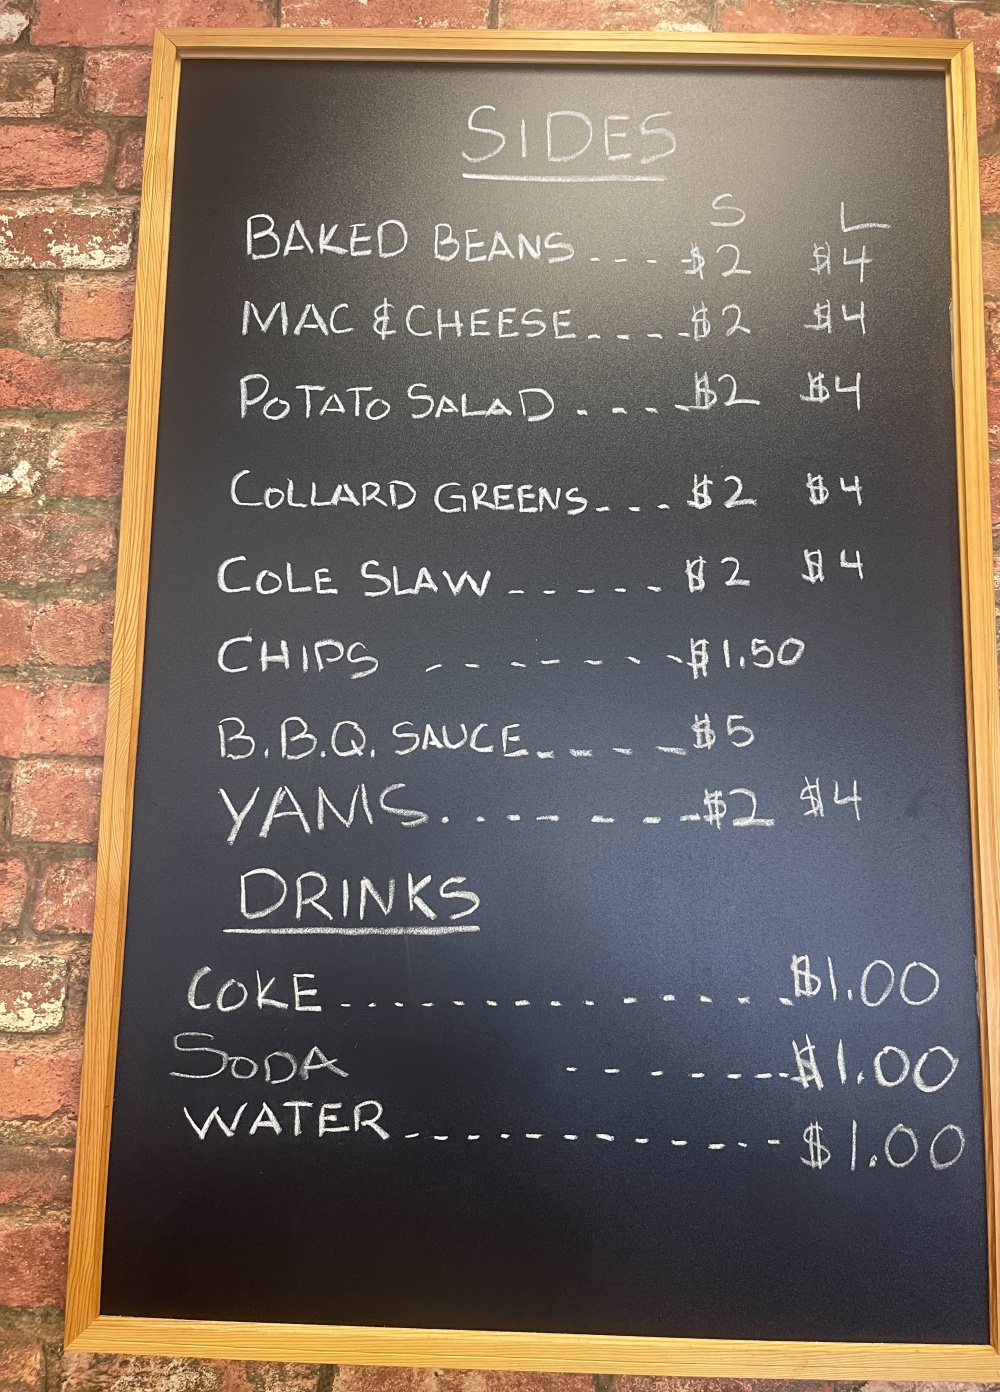 SIDES
S L
BAKED BEANS....$2 $4
MAC & CHEESE....$2 $4
POTATO SALAD....$2 $4
COLLARD GREENS...$2 $4
COLE SLAW.....$2 $4
CHIPS .......$1.50
B.B.Q. SAUCE....$5
YAMS.......$2 $4
DRINKS
COKE..............$1.00
SODA ......$1.00
WATER.............$1.00